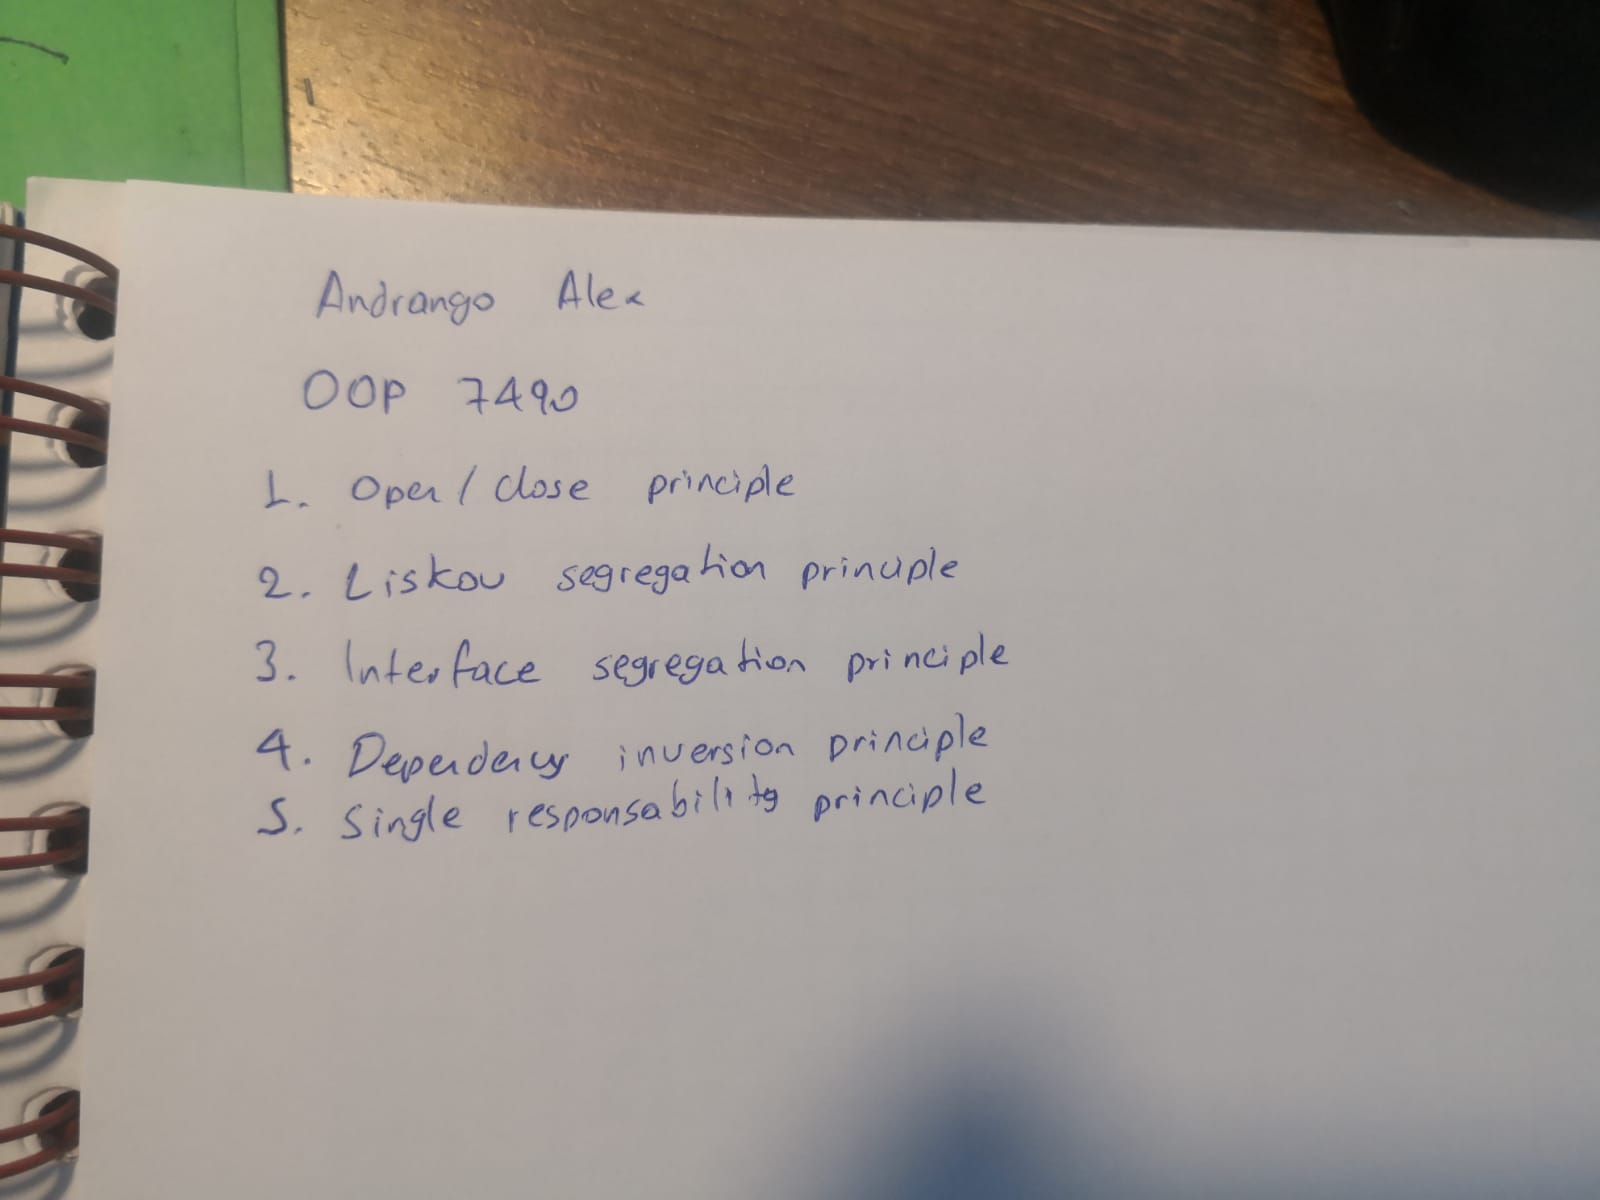 Andrango Alex
OOP 7490
1. Open / close principle
2. Liskov segregation principle
3. Interface segregation principle
4. Dependency inversion principle
5. Single responsability principle